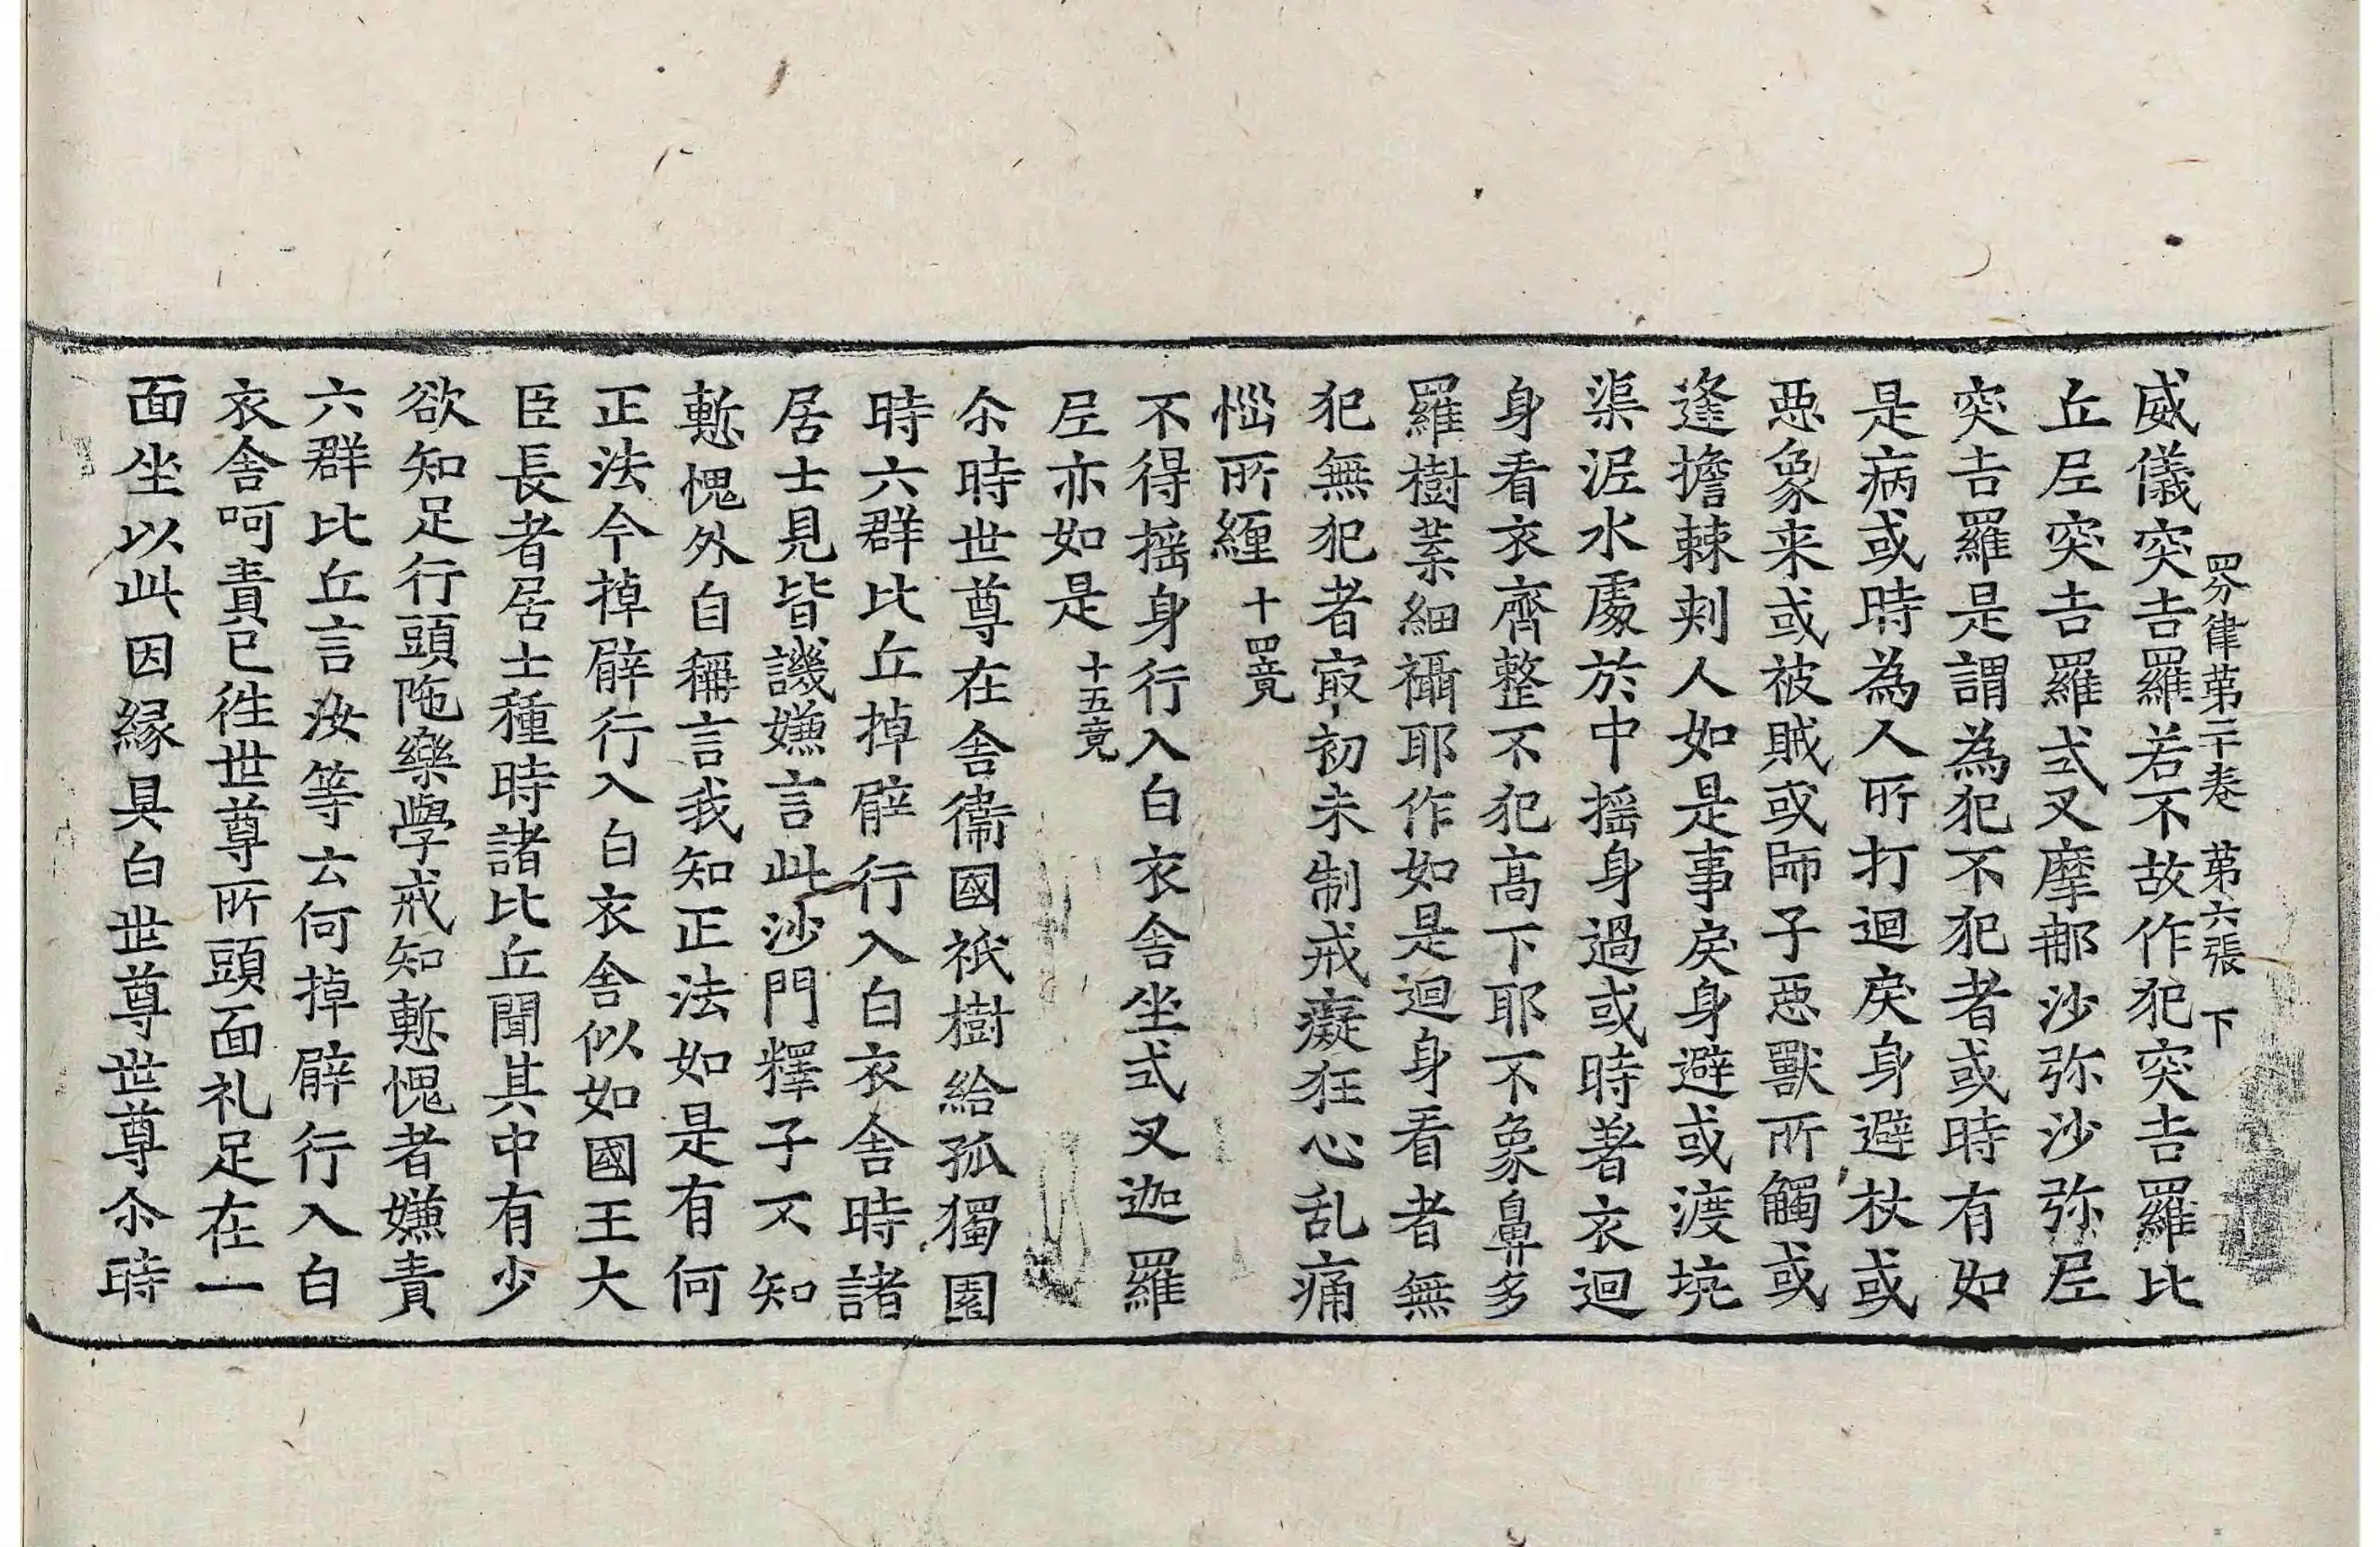 四分律苐二十卷　苐六張　下
威儀突吉羅若不故作犯突吉羅比
丘𡰱突吉羅式叉摩那沙弥沙弥𡰱
突吉羅是謂為犯不犯者或時有如
是病或時為人所打迴戾身避杖或
惡象来或被賊或師子惡獸所觸或
逢擔棘刾人如是事戾身避或渡坑
渠泥水處於中揺身過或時著衣迴
身看衣齊整不犯高下耶不象鼻多
羅樹葉細襵耶作如是迴身看者無
犯無犯者寂初未制戒癡狂心乱痛
惱所纏十四竟
不得揺身行入白衣舎坐式叉迦羅
𡰱亦如是十五竟
尒時世尊在舎衛國祇樹給孤獨園
時六群比丘掉臂行入白衣舎時諸
居士見皆譏嫌言此沙門釋子不知
慙愧外自稱言我知正法如是有何
正法今掉臂行入白衣舎似如國王大
臣長者居士種時諸比丘聞其中有少
欲知足行頭陁樂學戒知慙愧者嫌責
六群比丘言汝等云何掉臂行入白
衣舎呵責已徃世尊所頭面礼足在一
面坐以此因縁具白世尊世尊尒時